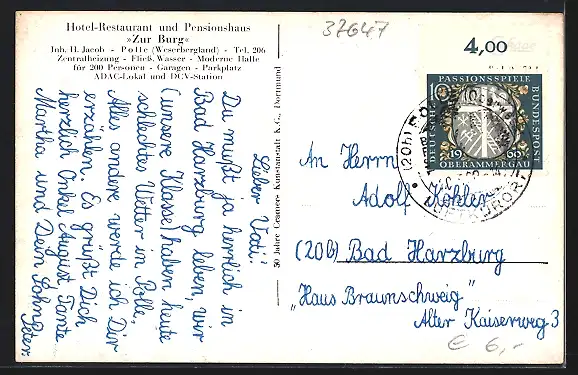 Hotel-Restaurant und Pensionshaus
»Zur Burg«
Inh. H. Jacob - Polle (Weserbergland) - Tel. 206
Zentralheizung - Fließ. Wasser - Moderne Halle
für 200 Personen - Garagen - Parkplatz
ADAC-Lokal und DCV-Station
37647
4,00
PASSIONSSPIELE
DEUTSCHE
BUNDESPOST
10
1960
OBERAMMERGAU
(20b)
LUFTKURORT
Lieber Vati!
Du mußt ja herrlich in
Bad Harzburg leben, wir
(unsere Klasse) haben heute
schlechtes Wetter in Polle,
Alles andere werde ich Dir
erzählen. Es grüßt Dich
herzlich Onkel August Tante
Martha und Dein Sohn
Peter.
50 Jahre Cramers Kunstanstalt K.G., Dortmund
An Herrn
Adolf Köhler
(20b) Bad Harzburg
"Haus Braunschweig"
Alter Kaiserweg 3
€ 6,-